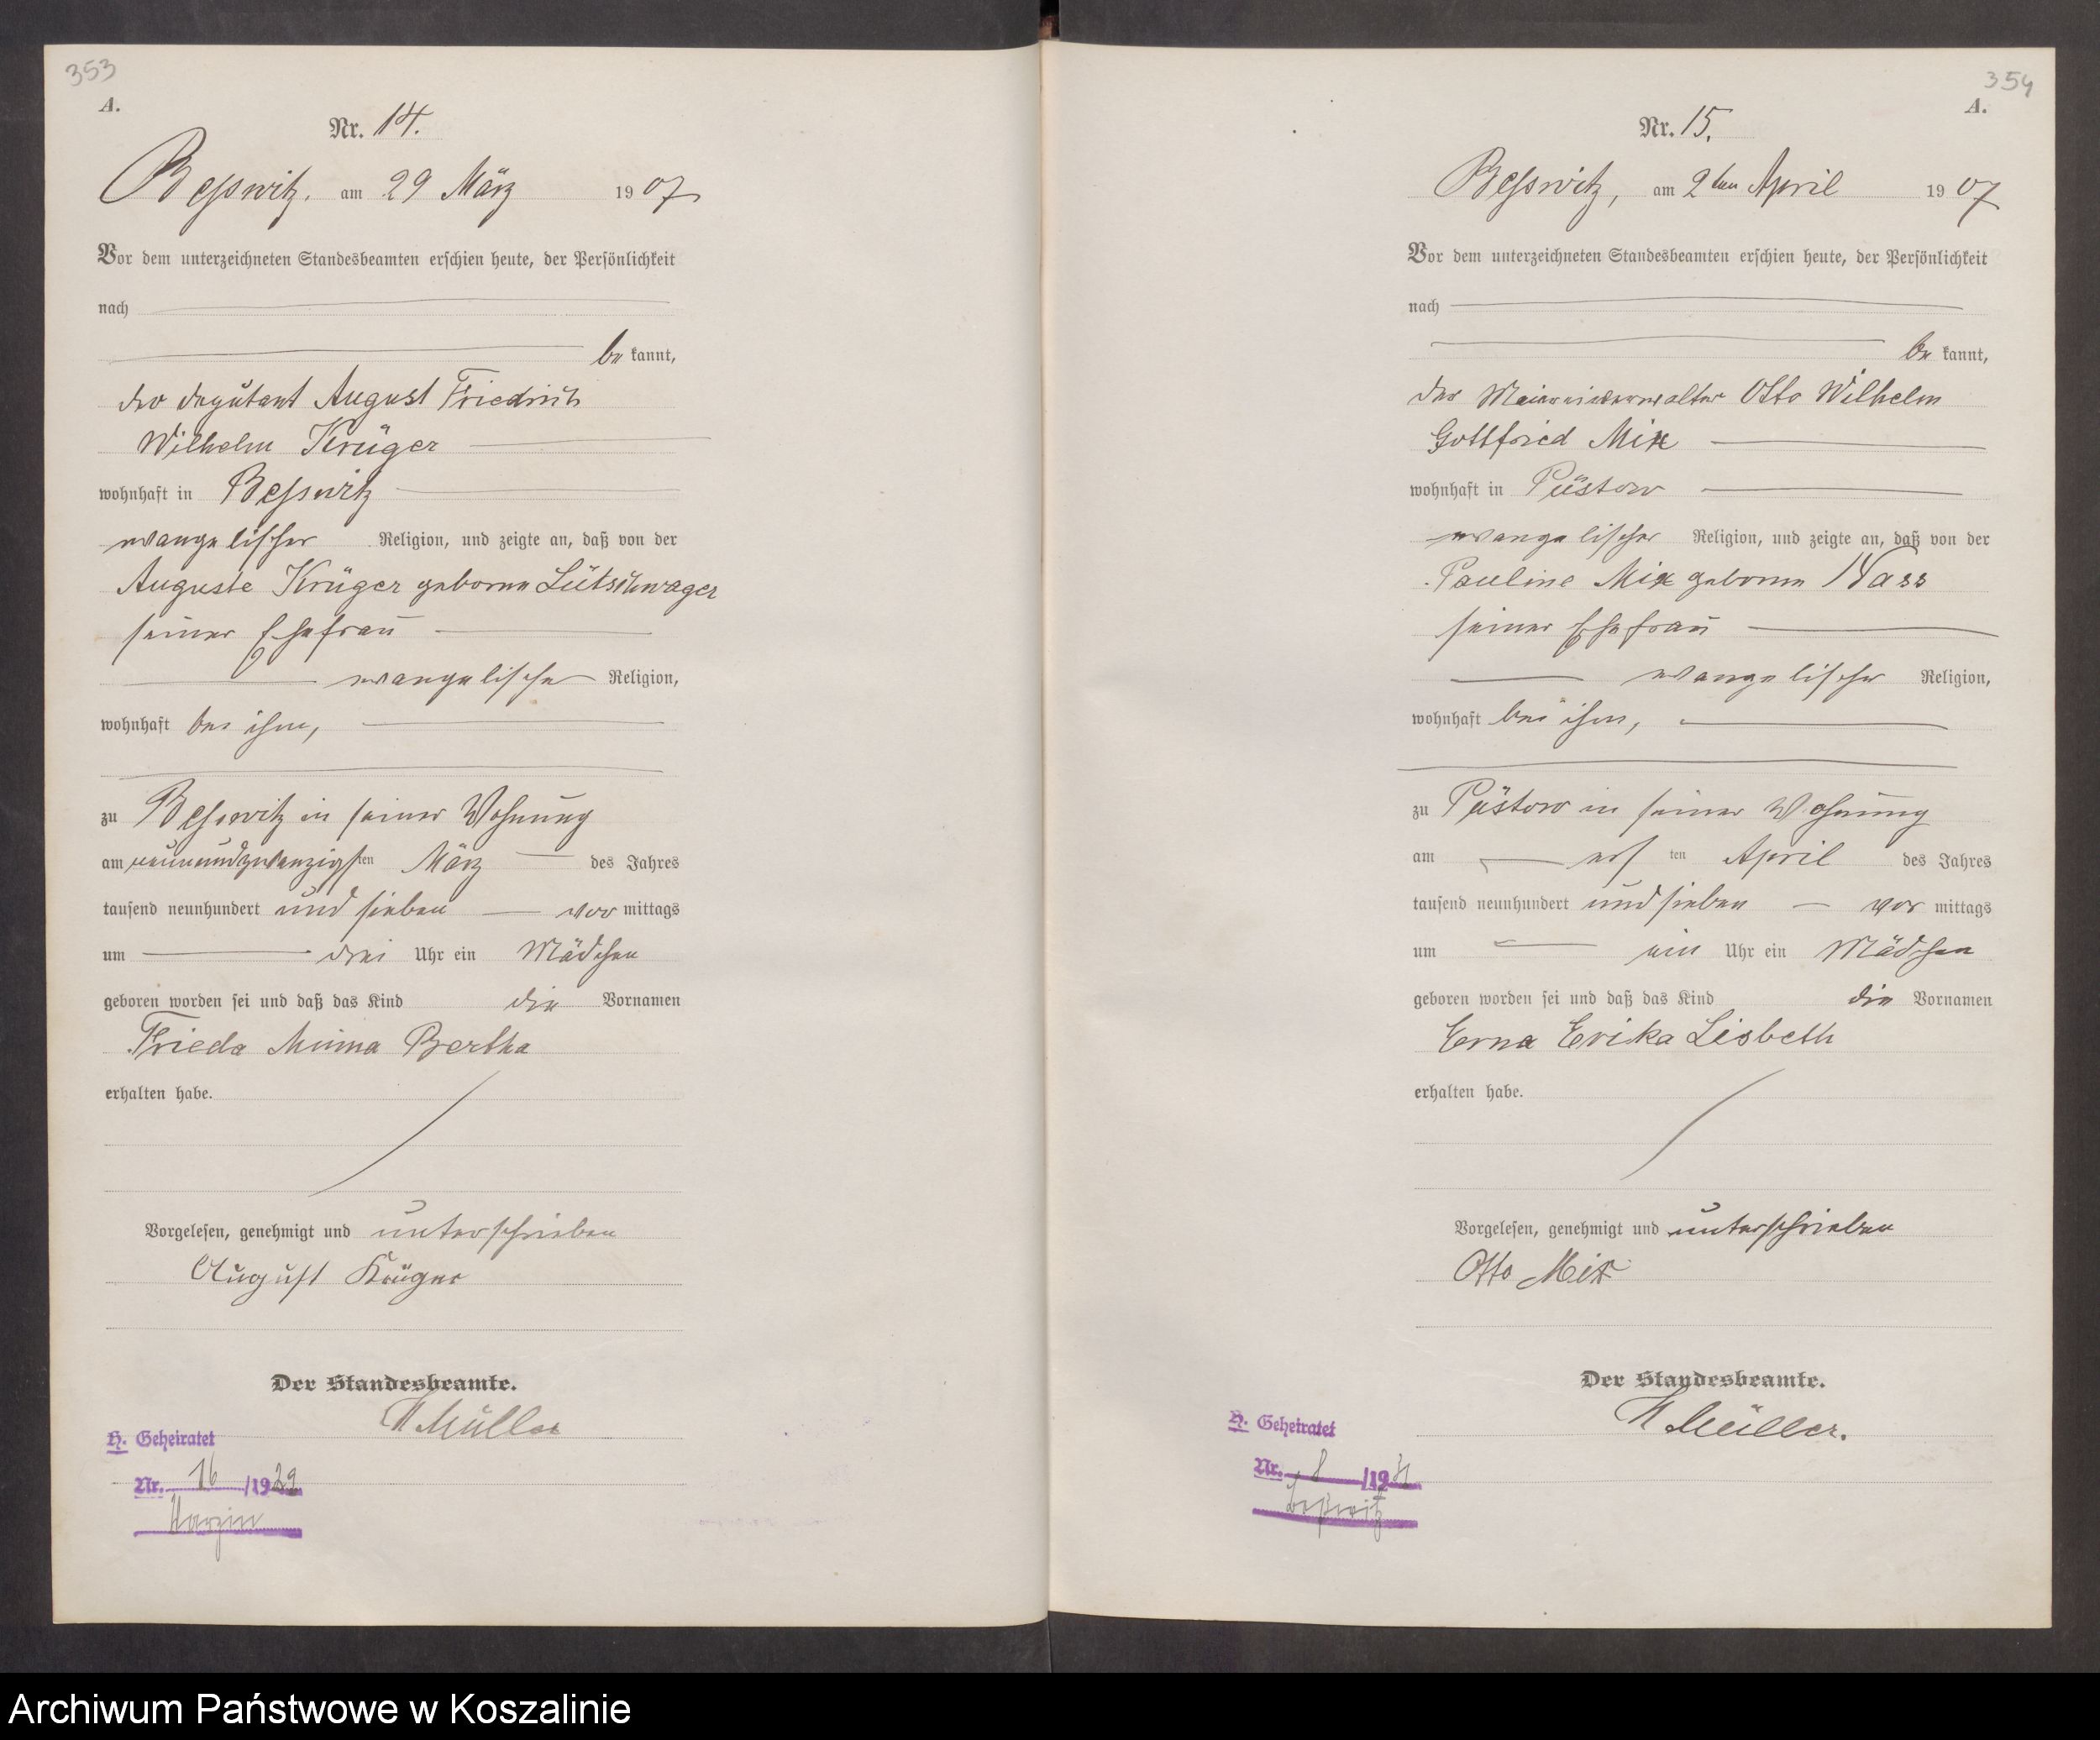 353
A.
Nr. 14.
Besswitz. am 29 März 1907
Vor dem unterzeichneten Standesbeamten erschien heute, der Persönlichkeit
nach
be kannt,
der Deputant August Friedrich
Wilhelm Krüger
wohnhaft in Besswitz
evangelischer Religion, und zeigte an, daß von der
Auguste Krüger geborne Lütschwager
seiner Ehefrau
evangelische Religion,
wohnhaft bei ihm,
zu Besswitz in seiner Wohnung
am neunundzwanzigsten März des Jahres
tausend neunhundert und sieben vor mittags
um drei Uhr ein Mädchen
geboren worden sei und daß das Kind die Vornamen
Frieda Minna Bertha
erhalten habe.
Vorgelesen, genehmigt und unterschrieben
August Krüger
Der Standesbeamte.
Müller
H. Geheiratet
Nr. 16 /1929
Varzin
354
A.
Nr. 15.
Besswitz, am 2ten April 1907
Vor dem unterzeichneten Standesbeamten erschien heute, der Persönlichkeit
nach
be kannt,
der Meiereiverwalter Otto Wilhelm
Gottfried Mix
wohnhaft in Püstow
evangelischer Religion, und zeigte an, daß von der
Pauline Mix geborne Nass
seiner Ehefrau
evangelischer Religion,
wohnhaft bei ihm,
zu Püstow in seiner Wohnung
am ersten April des Jahres
tausend neunhundert und sieben vor mittags
um ein Uhr ein Mädchen
geboren worden sei und daß das Kind die Vornamen
Erna Erika Lisbeth
erhalten habe.
Vorgelesen, genehmigt und unterschrieben
Otto Mix
Der Standesbeamte.
Müller.
H. Geheiratet
Nr. 8 /19
Beßwitz
Archiwum Państwowe w Koszalinie